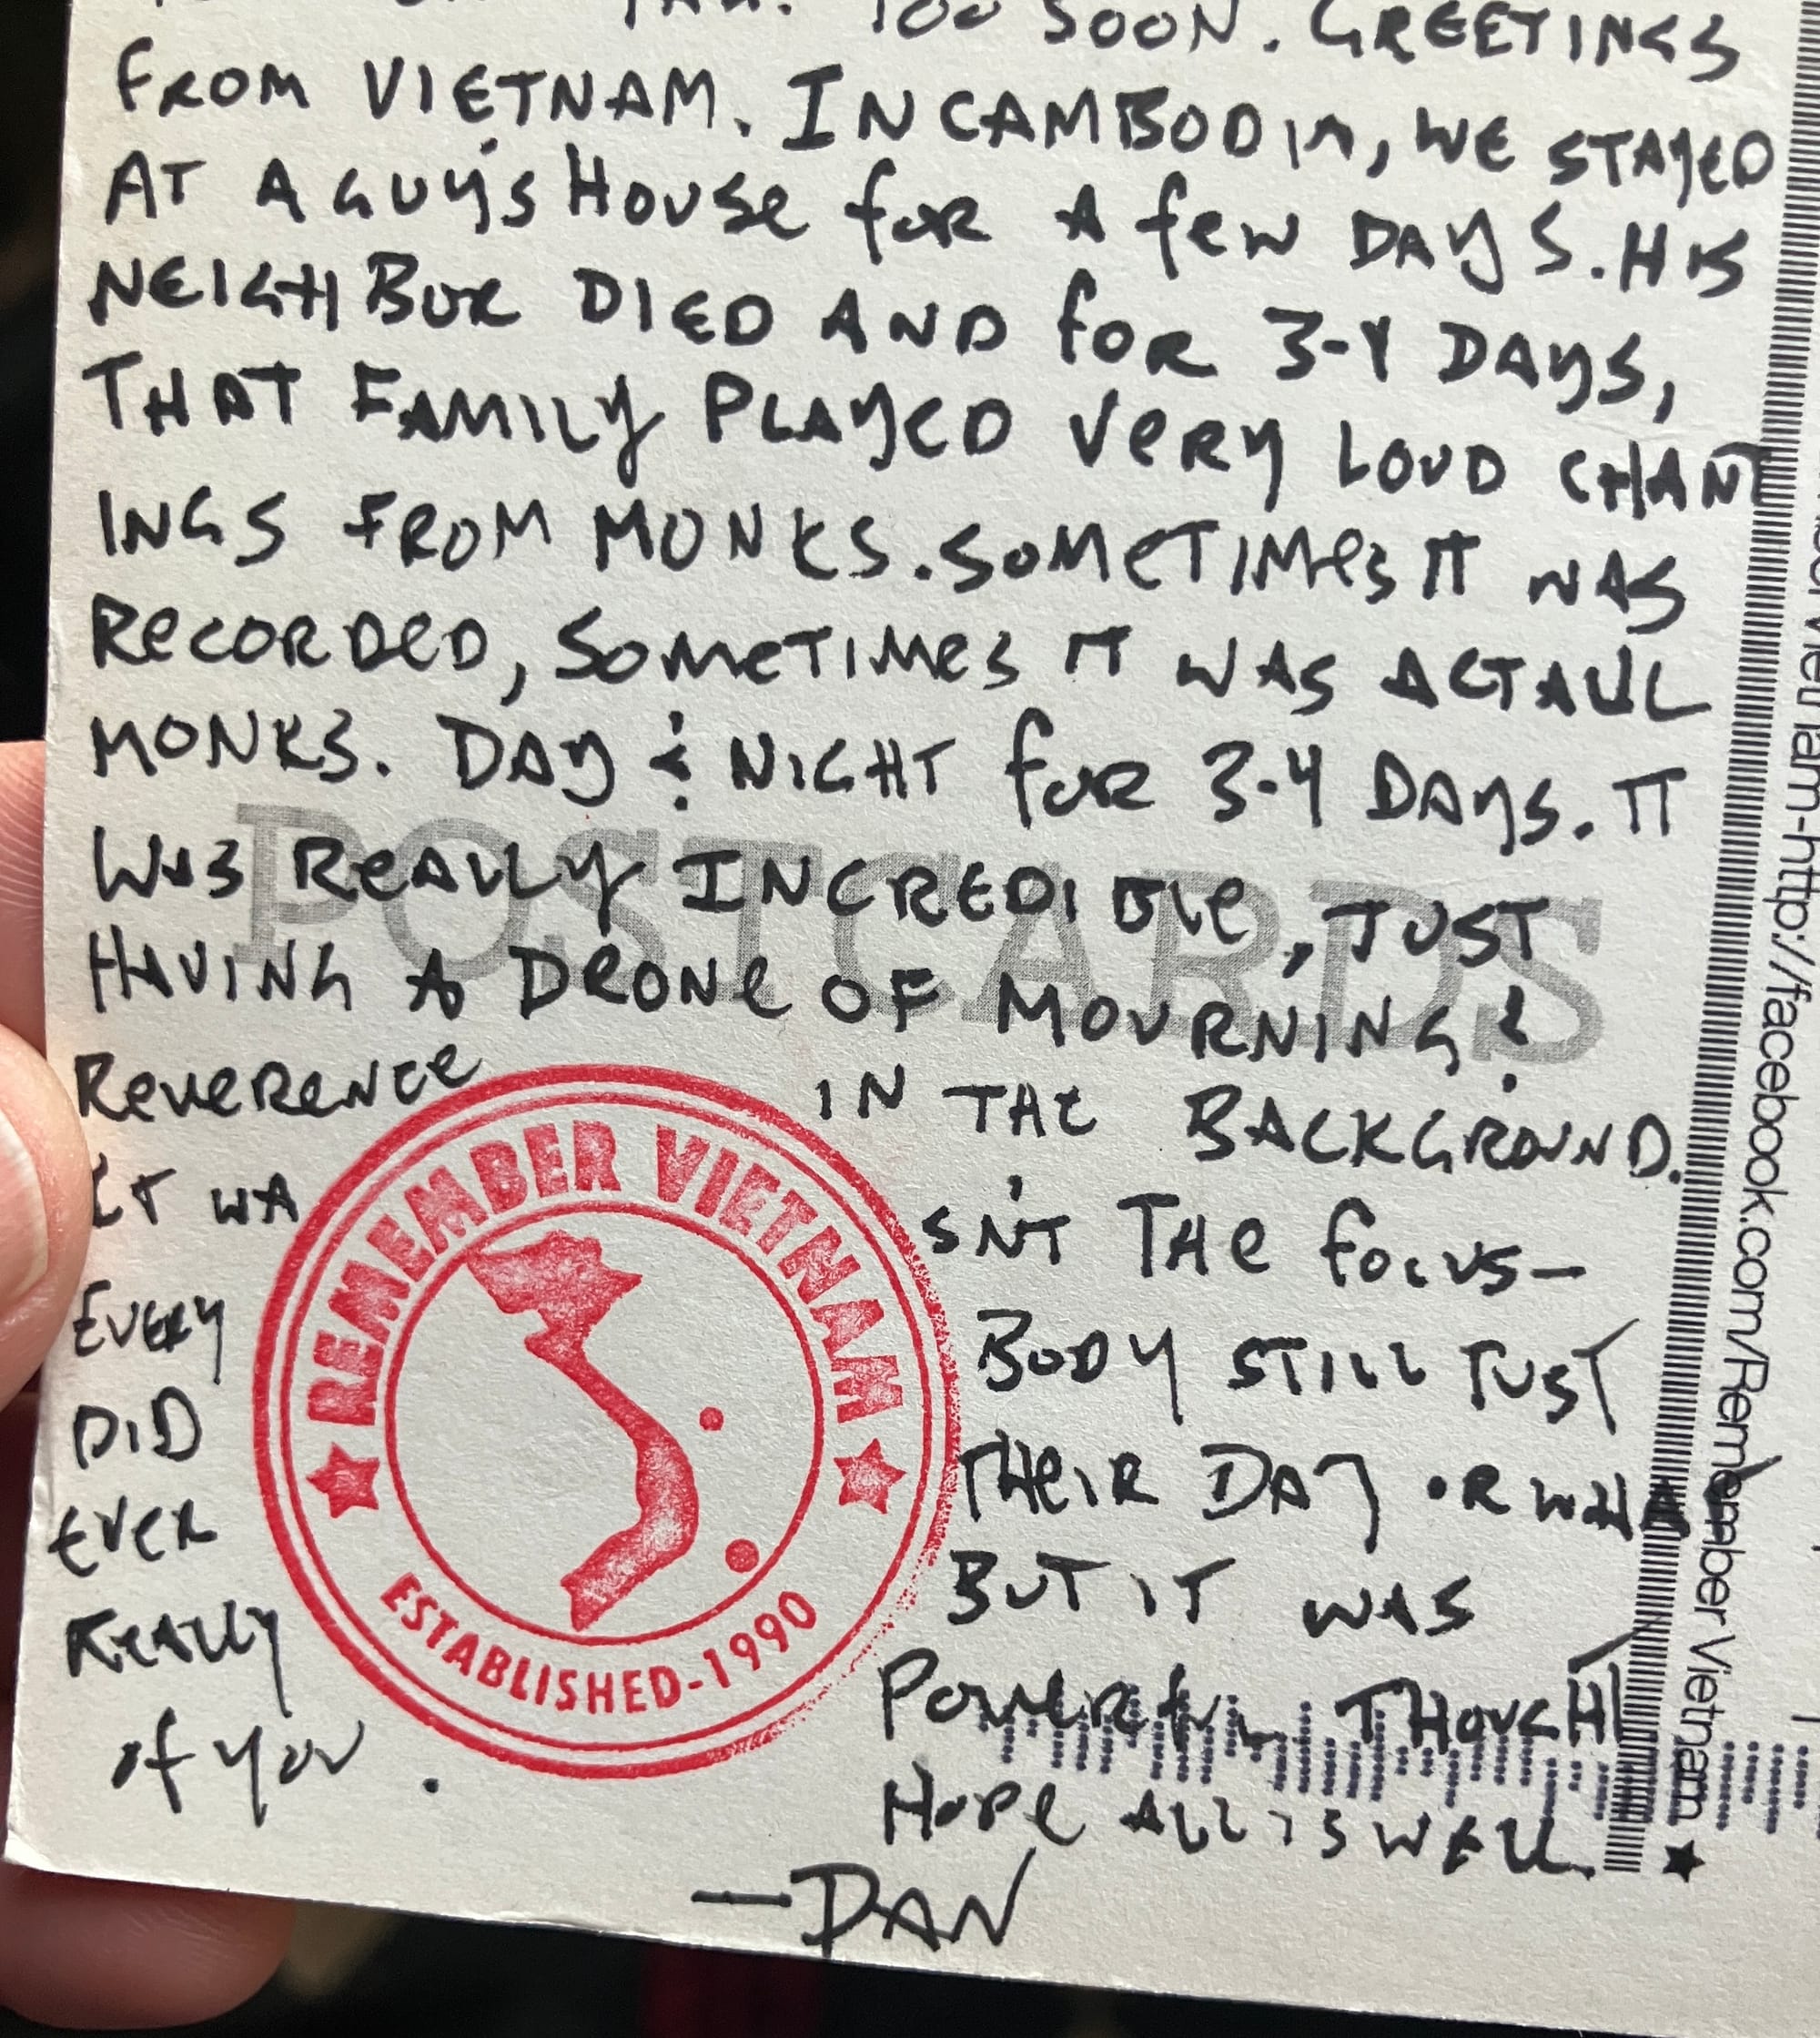 TOO SOON. GREETINGS
FROM VIETNAM. IN CAMBODIA, WE STAYED
AT A GUY'S HOUSE FOR A FEW DAYS. HIS
NEIGHBUR DIED AND FOR 3-4 DAYS,
THAT FAMILY PLAYED VERY LOUD CHANT
INGS FROM MONKS. SOMETIMES IT WAS
RECORDED, SOMETIMES IT WAS ACTAUL
MONKS. DAY & NIGHT FOR 3-4 DAYS. IT
WAS REALLY INCREDIBLE, JUST
HAVING A DRONE OF MOURNING &
REVERENCE IN THE BACKGROUND.
IT WA SN'T THE FOCUS—
EVERY BODY STILL JUST
DID THEIR DAY OR WHAT
EVER BUT IT WAS
REALLY POWERFUL THOUGHT
OF YOU. HOPE ALL IS WELL.
—DAN
POSTCARDS
REMEMBER VIETNAM
ESTABLISHED-1990
Vietnam-http://facebook.com/Remember Vietnam